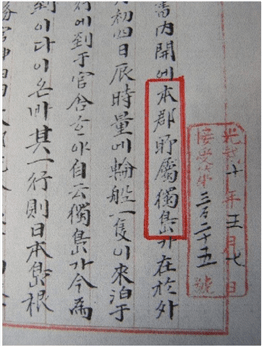 光武十年五月七日
接受第三百二十五號
書內開에本郡所屬獨島가在於外
初四日辰時量에輪船一隻이來泊于
行에到于官舍ᄒᆞ야自云獨島가今爲
到이다이온바其一行則日本島根